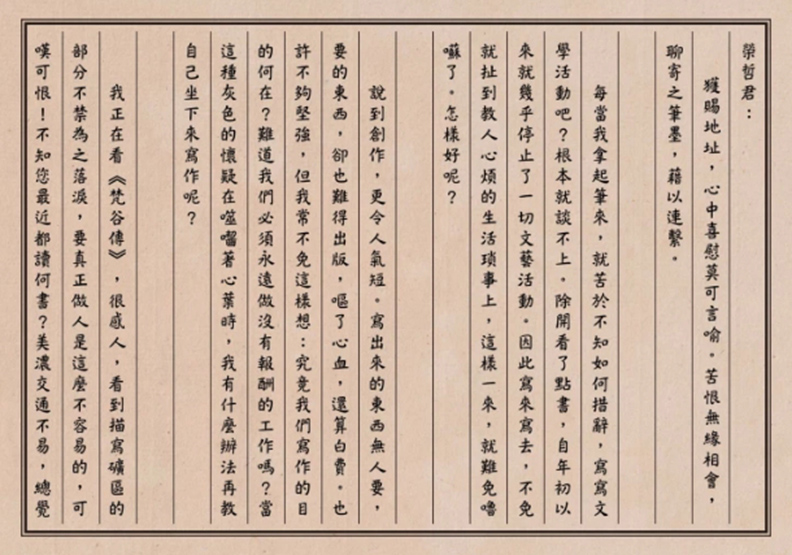 榮哲君：
獲賜地址，心中喜慰莫可言喻。苦恨無緣相會，
聊寄之筆墨，藉以連繫。
每當我拿起筆來，就苦於不知如何措辭，寫寫文
學活動吧？根本就談不上。除開看了點書，自年初以
來就幾乎停止了一切文藝活動。因此寫來寫去，不免
就扯到教人心煩的生活瑣事上，這樣一來，就難免嚕
囌了。怎樣好呢？
說到創作，更令人氣短。寫出來的東西無人要，
要的東西，卻也難得出版，嘔了心血，還算白費。也
許不夠堅強，但我常不免這樣想：究竟我們寫作的目
的何在？難道我們必須永遠做沒有報酬的工作嗎？當
這種灰色的懷疑在噬嚙著心葉時，我有什麼辦法再教
自己坐下來寫作呢？
我正在看《梵谷傳》，很感人，看到描寫礦區的
部分不禁為之落淚，要真正做人是這麼不容易的，可
嘆可恨！不知您最近都讀何書？美濃交通不易，總覺